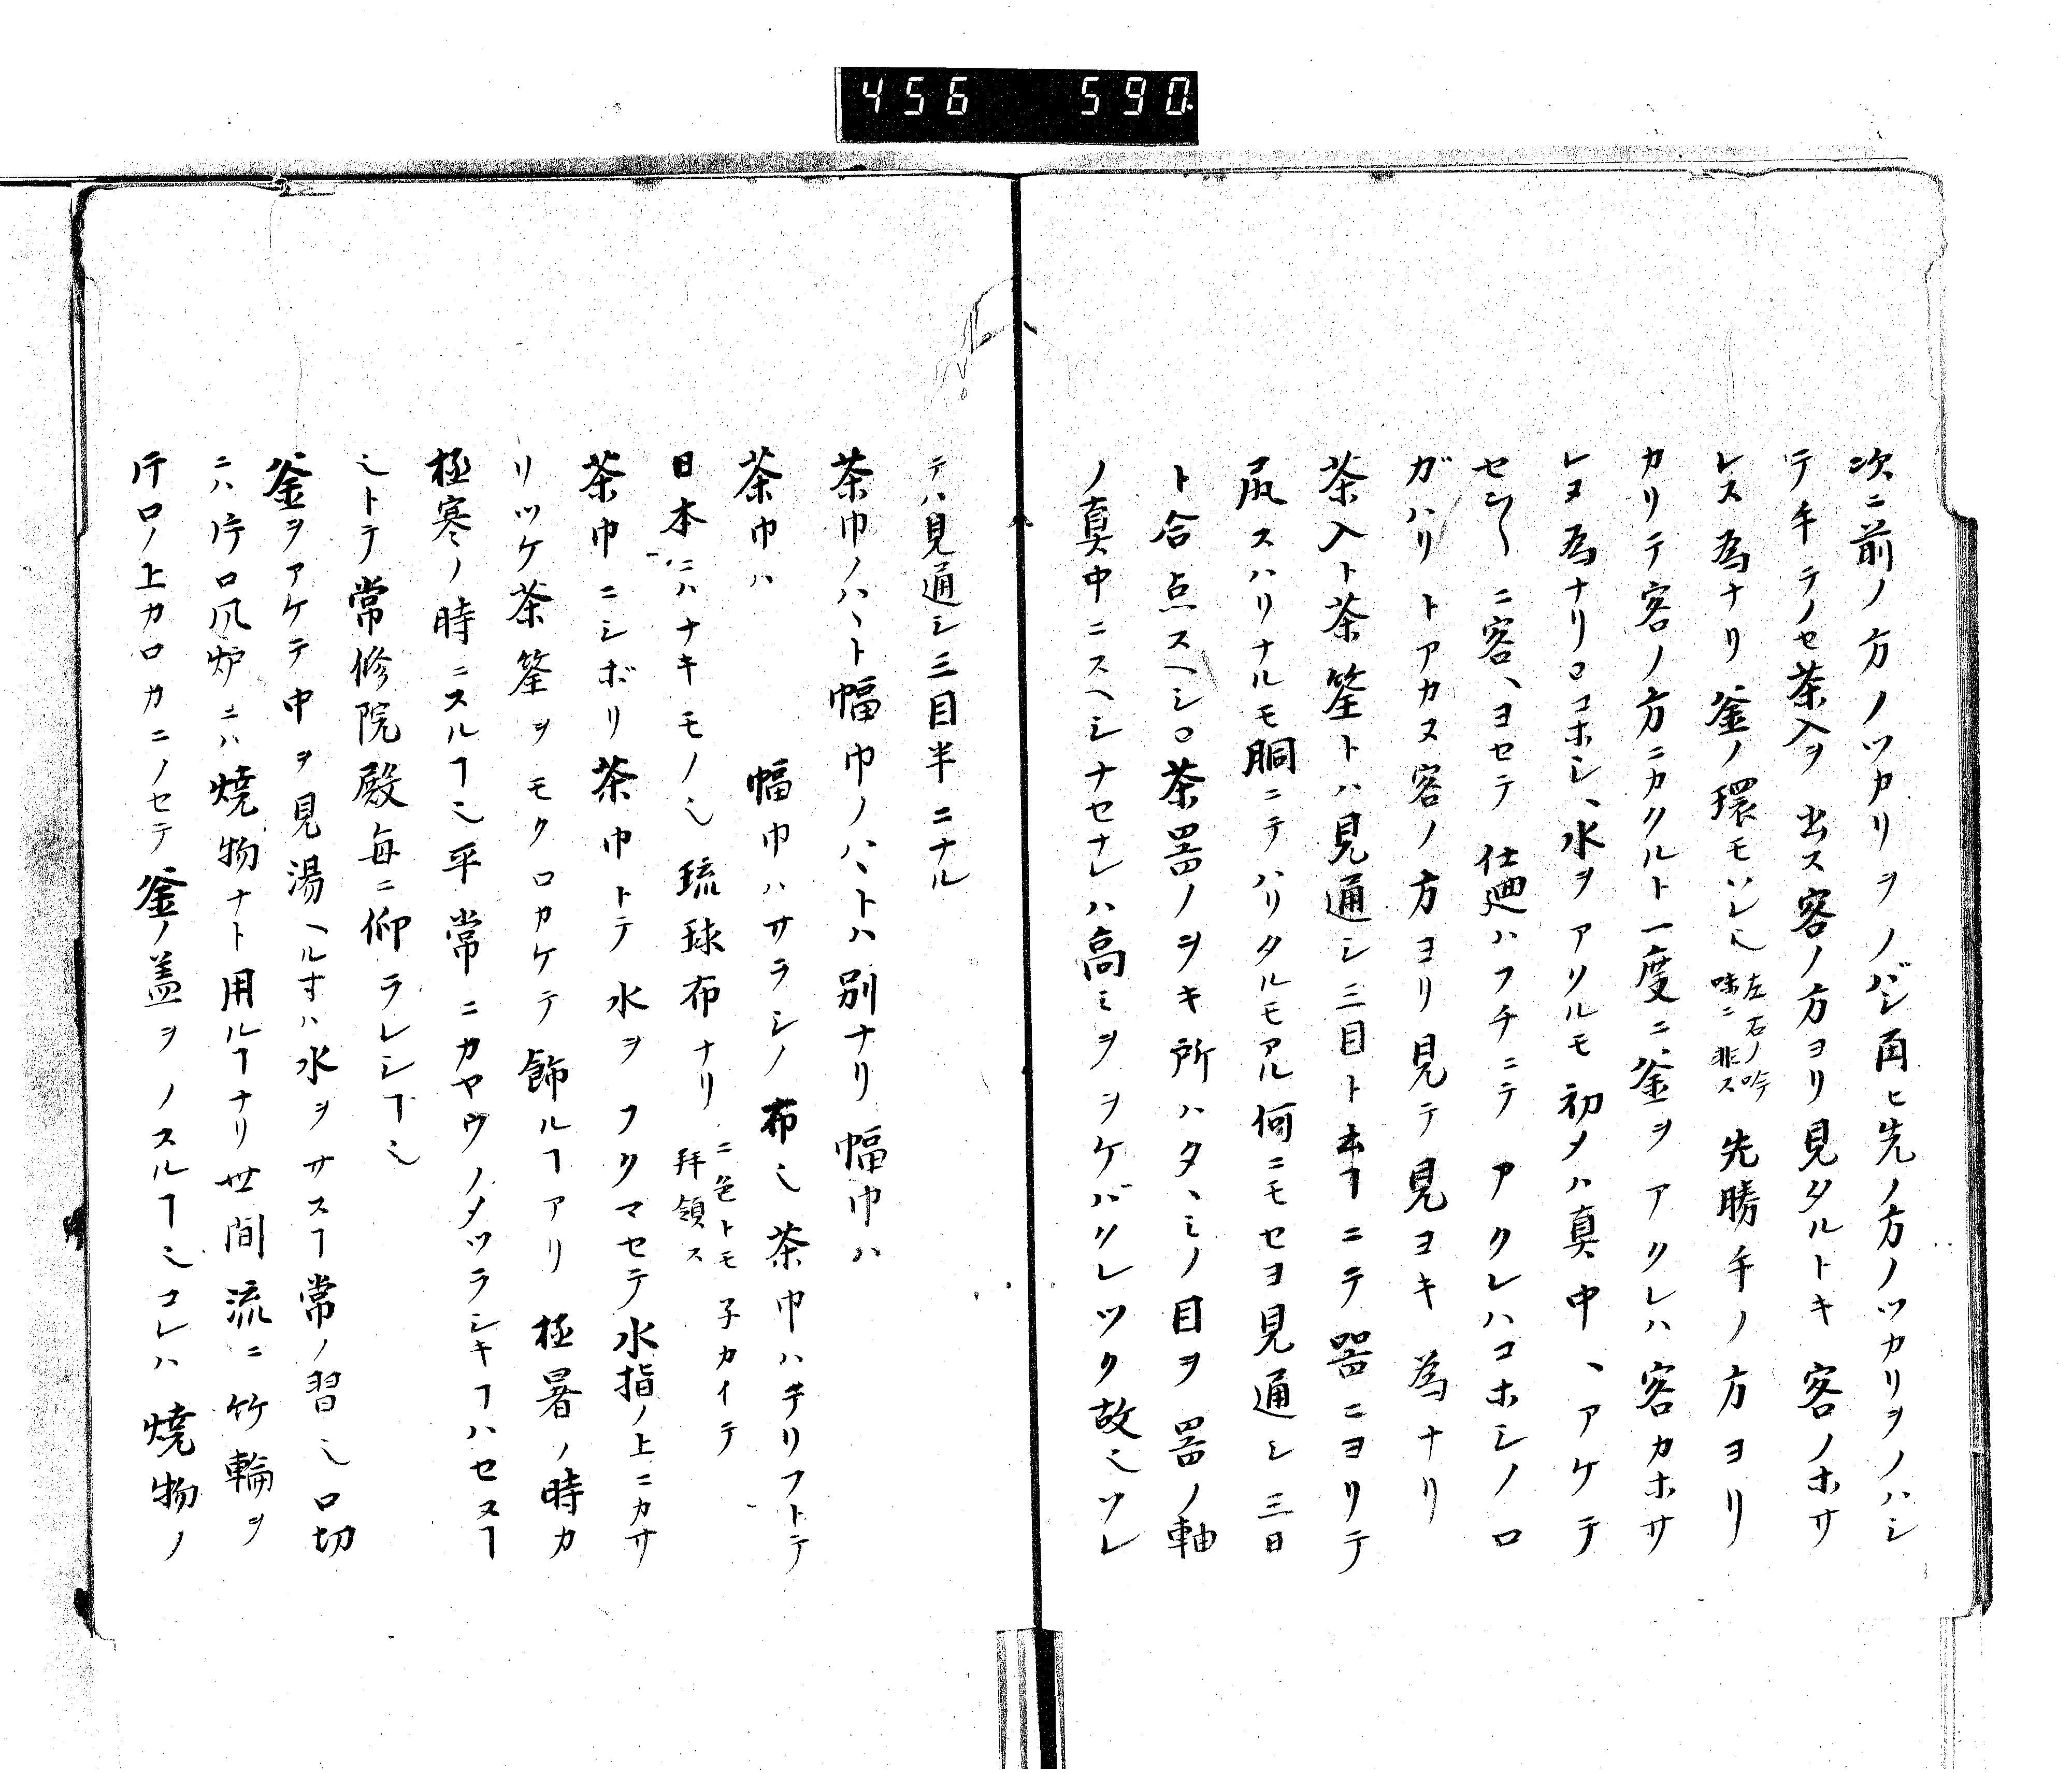 456 590.
次ニ前ノ方ノツカリヲノバシ両ヒ先ノ方ノツカリヲノハシ
テ手テノセ茶入ヲ出ス客ノ方ヨリ見タルトキ客ノホサ
レス為ナリ釜ノ環モソレ也左右ノ吟味ニ非ス先勝手ノ方ヨリ
カリテ客ノ方ニカクルト一度ニ釜ヲアクレハ客カホサ
レヌ為ナリ○コホシ、水ヲアツルモ初メハ真中、アケテ
セン〱ニ客、ヨセテ仕廻ハフチニテアクレハコホシノロ
ガハリトアカヌ客ノ方ヨリ見テ見ヨキ為ナリ
茶入ト茶筌トハ見通シ三目ト本ヿニテ器ニヨリテ
尻スハリナルモ胴ニテハリタルモアル何ニモセヨ見通シ三目
ト合点スヘシ○茶器ノヲキ所ハタヽミノ目ヲ器ノ軸
ノ真中ニスヘシナセナレハ高ミヲヲケバクレツク故ミツレ
テハ見通シ三目半ニナル
茶巾ノハヽト幅巾ノハヽトハ別ナリ幅巾ハ
茶巾ハ 幅巾ハサラシノ布也茶巾ハチリフトテ
日本ニハナキモノ也琉球布ナリ二色トモ子カイテ拝領ス
茶巾ニシボリ茶巾トテ水ヲフクマセテ水指ノ上ニカサ
リツケ茶筌ヲモクロカケテ飾ルヿアリ極暑ノ時カ
極寒ノ時ニスルヿ也平常ニカヤウノメツラシキヿハセヌヿ
也トテ常修院殿毎ニ仰ラレシヿ也
釜ヲアケテ中ヲ見湯ヘルすハ水ヲサスヿ常ノ習也口切
ニハ片口風炉ニハ焼物ナト用ルヿナリ世間流ニ竹輪ヲ
片口ノ上カロカニノセテ釜ノ蓋ヲノスルヿ也コレハ焼物ノ